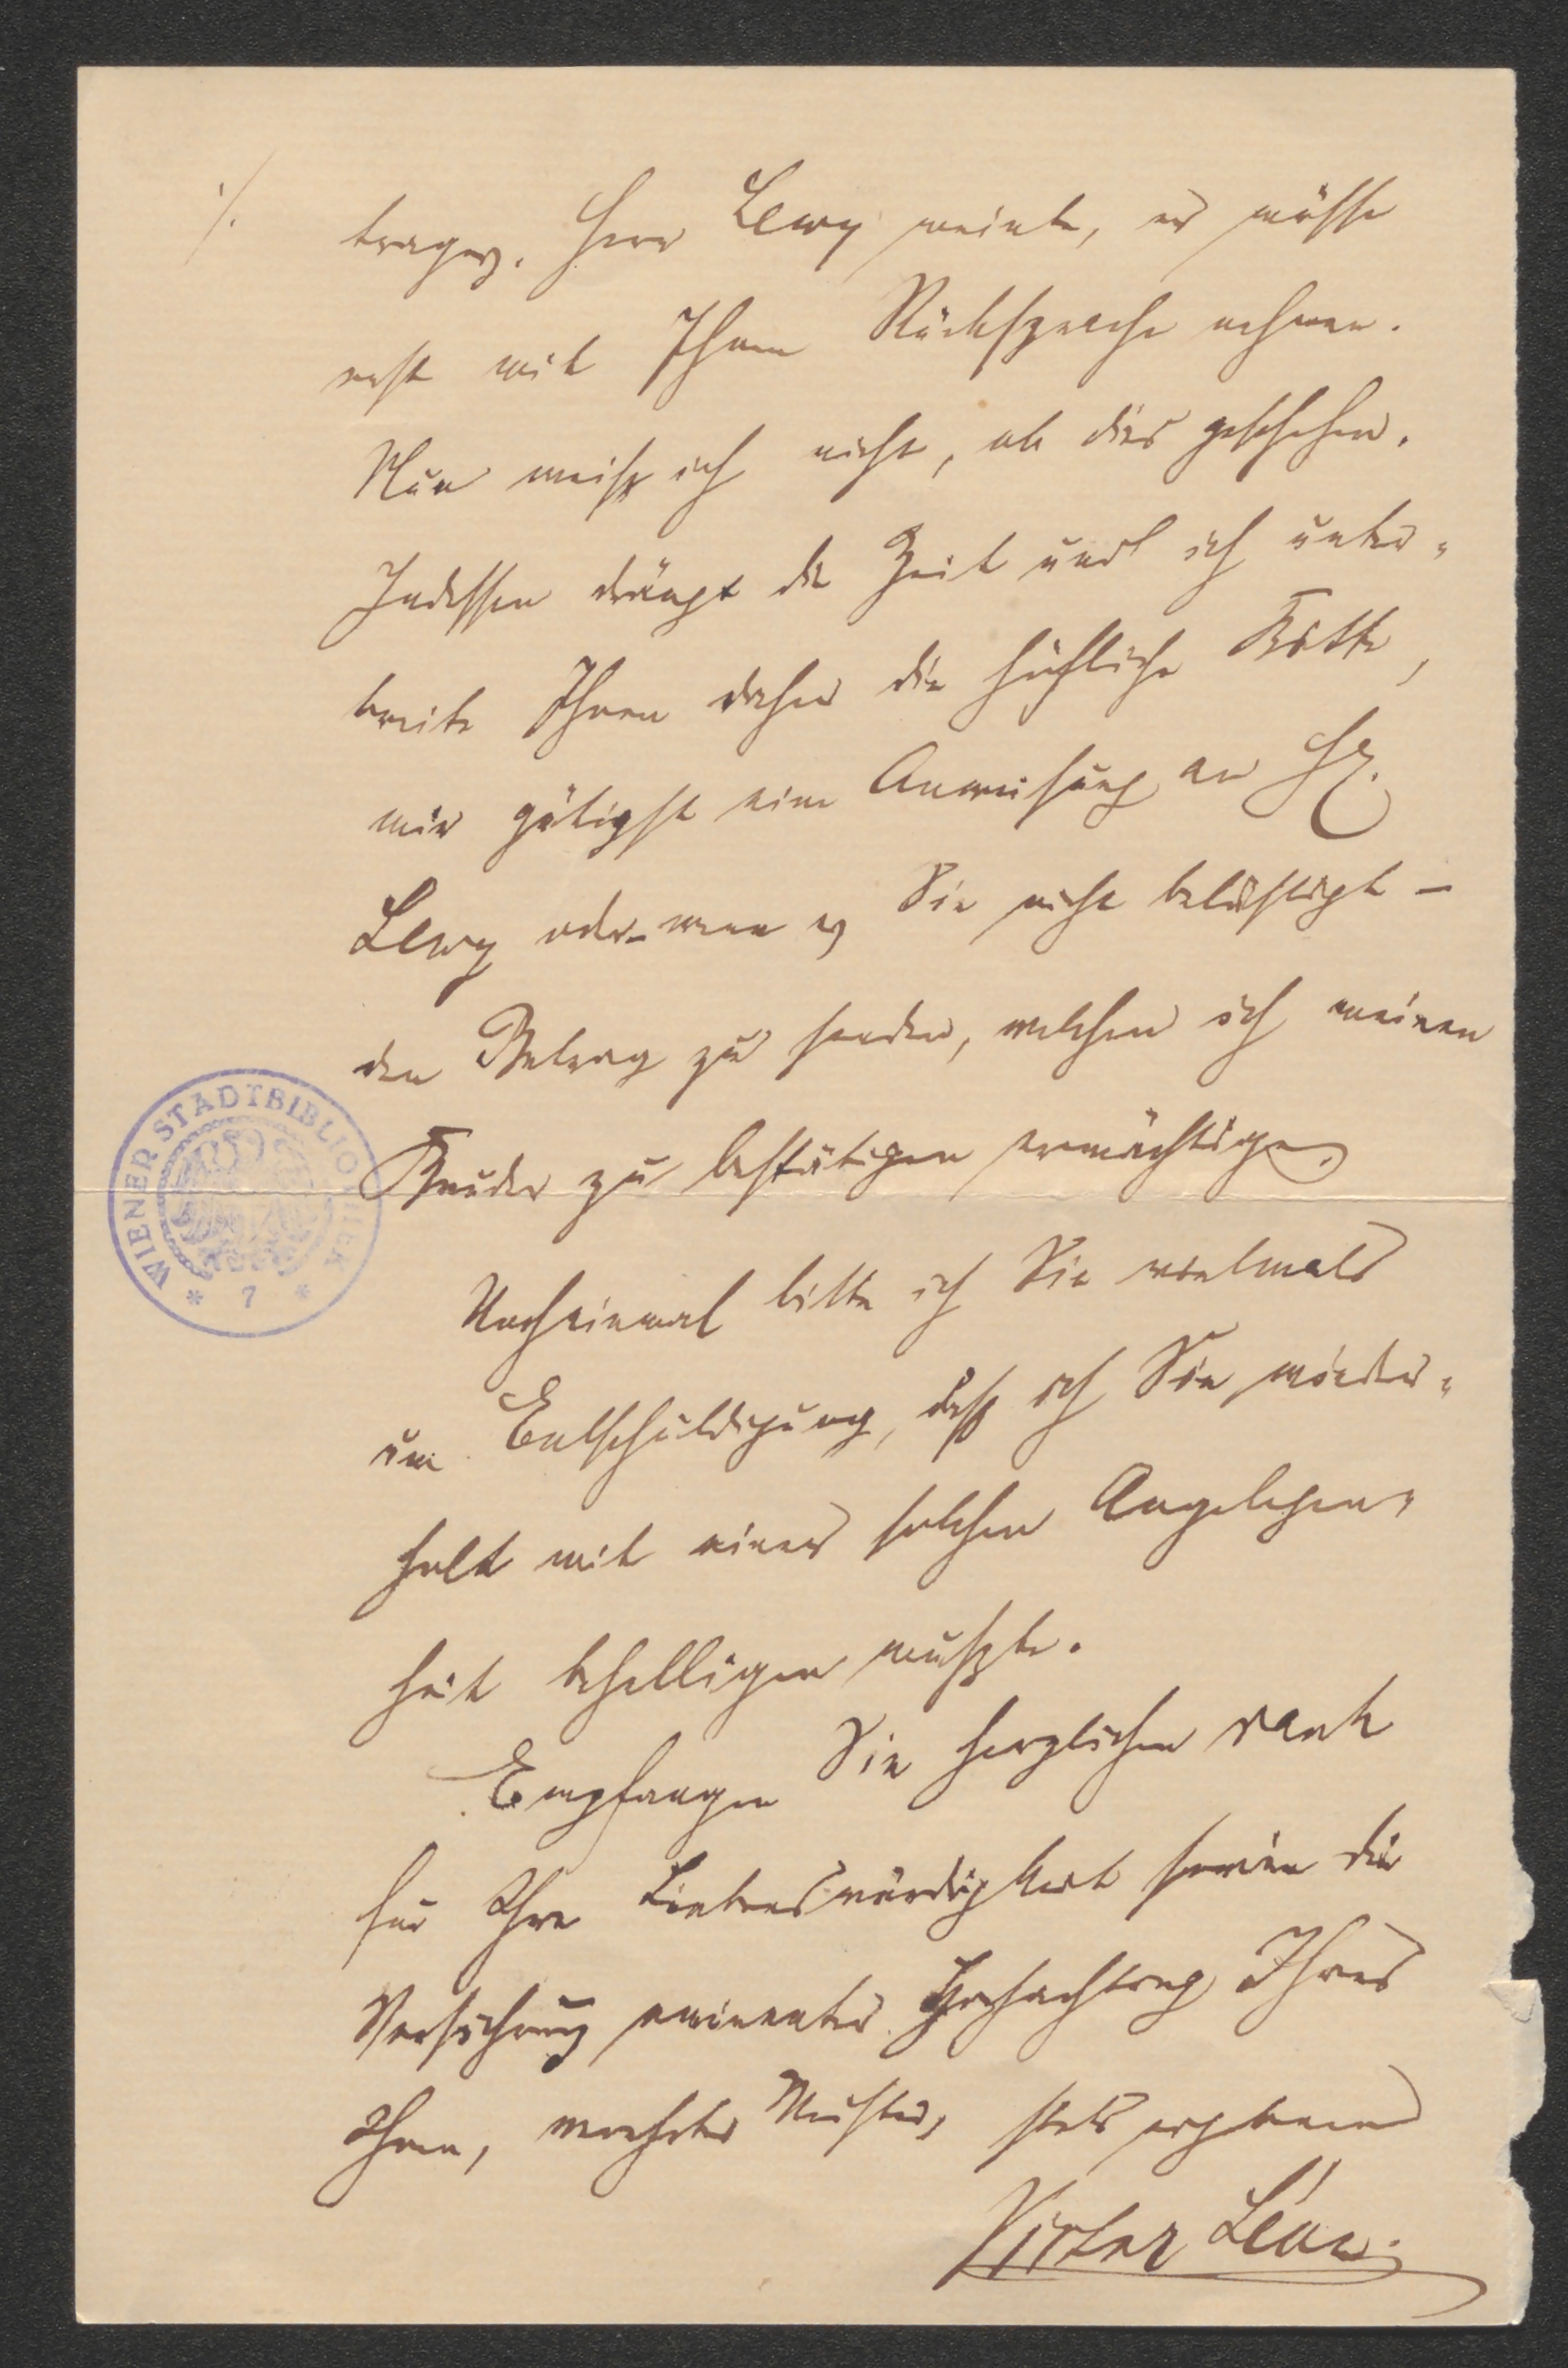 ./.
tragen. Herr Lewy meinte, er müsse
erst mit Ihnen Rücksprache nehmen.
Nun weiß ich nicht, ob dies geschehen.
Indessen drängt die Zeit und ich unter-
breite Ihnen daher die höfliche Bitte,
mir gütigst eine Anweisung an H.
Lewy oder – wenn es Sie nicht belästigt –
den Betrag zu senden, welchen ich meinen
Bruder zu bestätigen ermächtige.
Nocheinmal bitte ich Sie vielmals
um Entschuldigung, daß ich Sie wieder-
holt mit einer solchen Angelegen-
heit behelligen mußte.
Empfangen Sie herzlichen Dank
für Ihre Liebenswürdigkeit sowie die
Versicherung eminenter Hochachtung Ihres
Ihnen, verehrter Meister, stets ergebenen
Victor Léon.
WIENER STADTBIBLIOTHEK
* 7 *